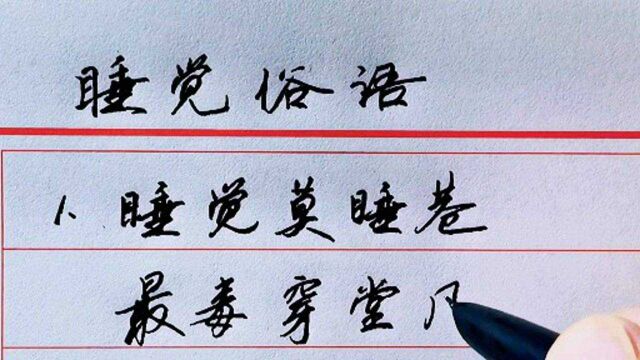 睡觉俗语
1、睡觉莫睡巷
最毒穿堂